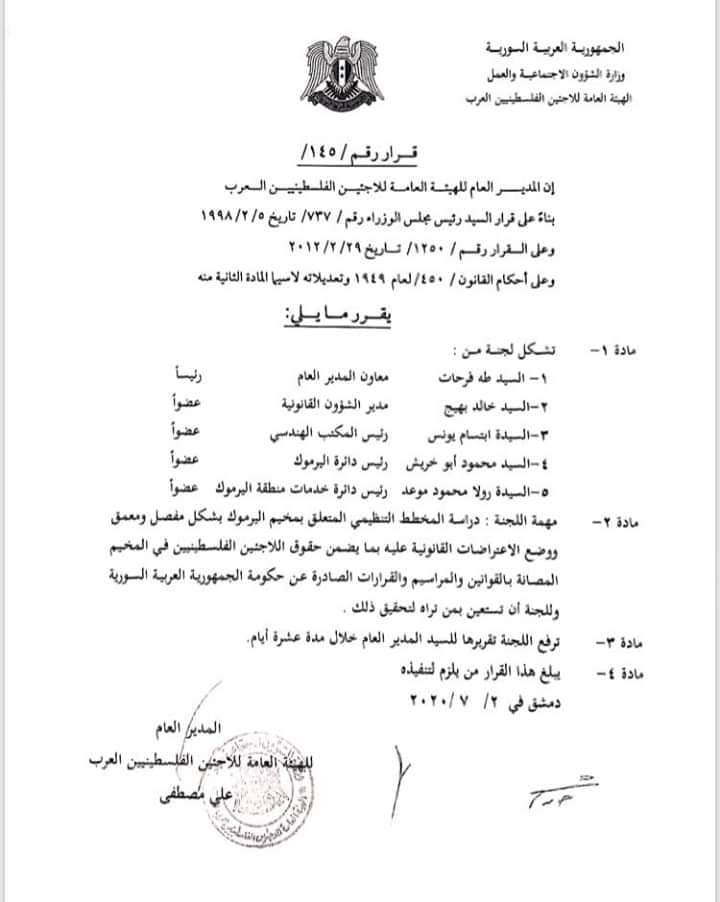 الجمهورية العربية السورية
وزارة الشؤون الاجتماعية والعمل
الهيئة العامة للاجئين الفلسطينيين العرب
قـرار رقـم /١٤٥/
إن المديـر العام للهيئـة العامـة للاجئيـن الفلسطينييـن العـرب
بناءً على قرار السيد رئيس مجلس الوزراء رقم / ٧٣٧/ تاريخ ١٩٩٨/٢/٥
وعلى القرار رقـم / ١٢٥٠/ تـاريخ ٢٠١٢/٢/٢٩
وعلى أحكام القانون / ٤٥٠/ لعام ١٩٤٩ وتعديلاته لاسيما المادة الثانية منه
يقـرر مـا يـلي:
مادة ١- تشكل لجنة مـن :
١- السيد طه فرحات معاون المدير العام رئيساً
٢-السيد خالد بهيج مدير الشؤون القانونية عضواً
٣-السيدة ابتسام يونس رئيس المكتب الهندسي عضواً
٤-السيد محمود أبو خريش رئيس دائرة اليرموك عضواً
٥-السيدة رولا محمود موعد رئيس دائرة خدمات منطقة اليرموك عضواً
مادة ٢- مهمة اللجنة : دراسة المخطط التنظيمي المتعلق بمخيم اليرموك بشكل مفصل ومعمق
ووضع الاعتراضات القانونية عليه بما يضمن حقوق اللاجئين الفلسطينيين في المخيم
المصانة بالقوانين والمراسيم والقرارات الصادرة عن حكومة الجمهورية العربية السورية
وللجنة أن تستعين بمن تراه لتحقيق ذلك .
مادة ٣- ترفع اللجنة تقريرها للسيد المدير العام خلال مدة عشرة أيام.
مادة ٤- يبلغ هذا القرار من يلزم لتنفيذه
دمشق في ٢ / ٧ /٢٠٢٠
المدير العام
للهيئة العامة للاجئين الفلسطينيين العرب
علي مصطفى